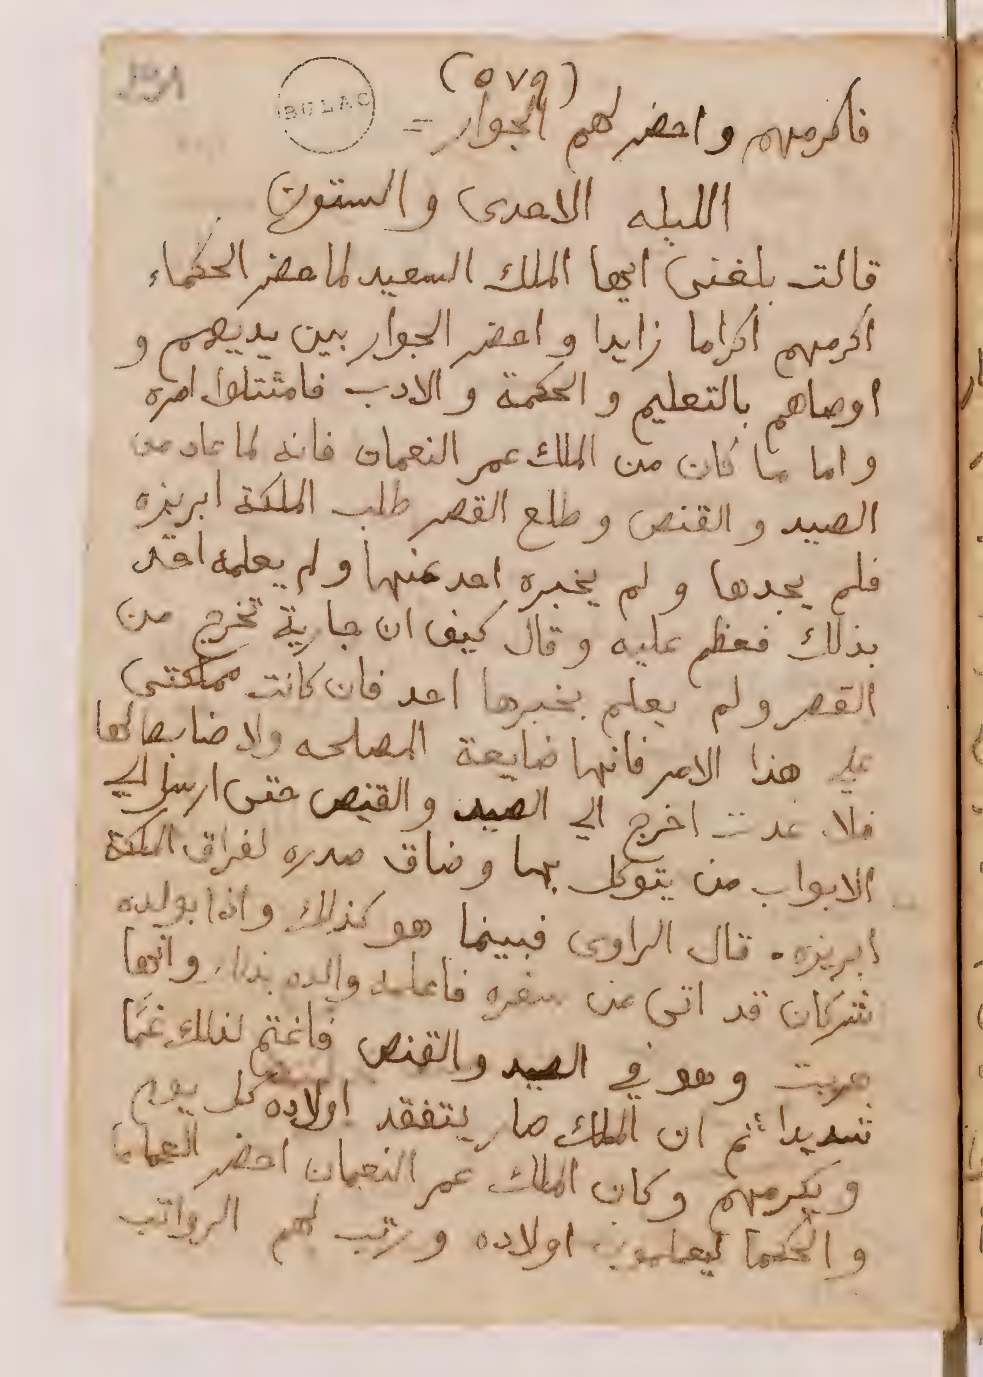 (٥٧٩)
BULAC
فاكرمهم و احضر لهم الجوار =
الليله الاحدى و الستون
قالت بلغنى ايها الملك السعيد لما حضر الحكماء
اكرمهم اكراما زايدا و احضر الجوار بين يديهم و
اوصاهم بالتعليم و الحكمة و الادب فامتثلوا امره
و اما ما كان من الملك عمر النعمان فانه لما عاد من
الصيد و القنص و طلع القصر طلب الملكة ابريزه
فلم يجدها و لم يخبره احد عنها و لم يعلمه احد
بذلك فعظم عليه و قال كيف ان جارية تخرج من
القصر و لم يعلم بخبرها احد فان كانت مملكتى
على هذا الامر فانها ضايعة المصلحه ولا ضابط لها
فلا عدت اخرج الي الصيد و القنص حتى ارسل الي
الابواب من يتوكل بها و ضاق صدره لفراق الملكة
ابريزه . قال الراوى فبينما هو كذلك و اذا بولده
شركان قد اتى من سفره فاعلمه والده بذلك و انها
هربت و هو في الصيد و القنص فاغتم لذلك غمًا
شديدا ثم ان الملك صار يتفقد اولاده كل يوم
و يكرمهم و كان الملك عمر النعمان احضر العلما
و الحكما ليعلمون اولاده و رتب لهم الرواتب